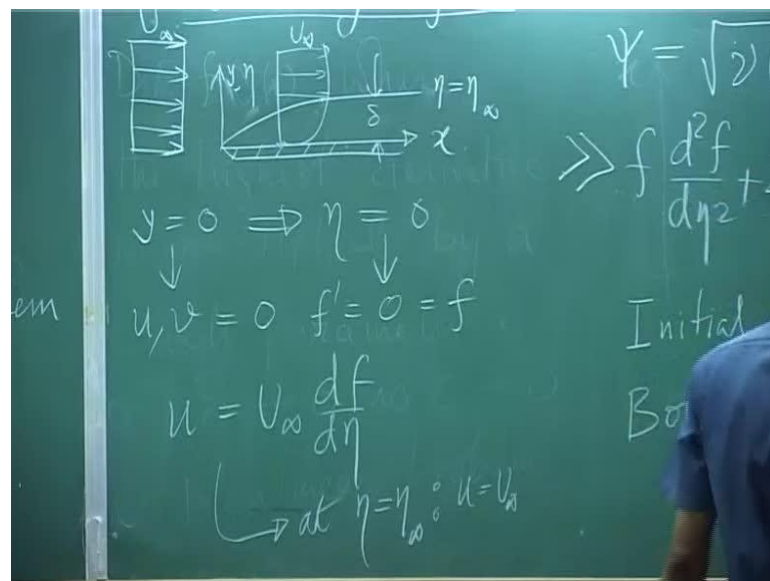 U∞
U∞
y, η
η = η∞
δ
x
y = 0 ⟹ η = 0
↓ ↓
u, v = 0 f' = 0 = f
u = U∞ df/dη
→ at η = η∞ : u = U∞
em
ψ = √ν
≫ f d²f/dη² +
Initial
Bo